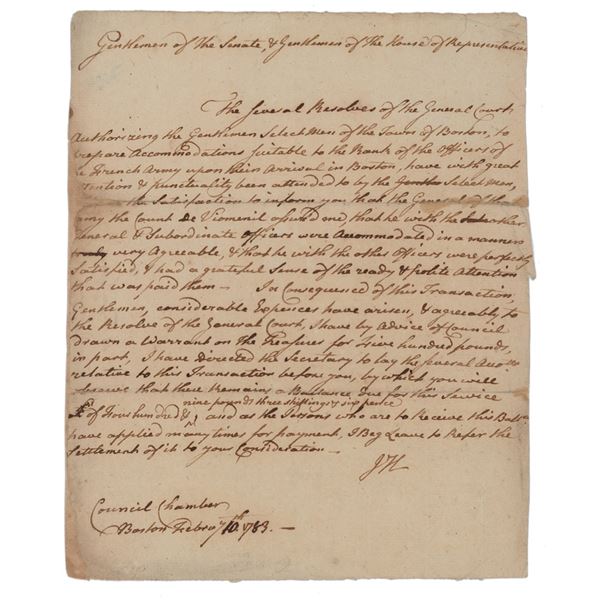 Gentlemen of the Senate, & Gentlemen of the House of Representative
The several Resolves of the General Court
Authorizing the Gentlemen Select Men of the Town of Boston, to
prepare Accommodations suitable to the Rank of the Officers of
e French Army upon their Arrival in Boston, have with great
tention & Punctuality been attended to by the Gentle Select Men,
the Satisfaction to inform you that the General of that
army the Count de Viomenil assured me, that he with the other
General & Subordinate Officers were Accommodated in a manner
truly very Agreable, & that he with the other Officers were perfectly
Satisfied, & had a grateful Sense of the ready & polite Attention
that was paid them — In Consequence of this Transaction
Gentlemen, considerable Expences have arisen, & agreeably to
the Resolve of the General Court, I have by Advice of Council
drawn a Warrant on the Treasurer for five hundred pounds,
in part, I have directed the Secretary to lay the several Accots
relative to this Transaction before you, by which you will
that there remains a Ballance due for this Service
nine pounds three shillings & six pence
of Four hundred &, and as the Persons who are to Receive this
have applied many times for payment, I Beg Leave to Refer the
Settlement of it to your Consideration —
JH
Council Chamber
Boston Febray 10th 1783. —